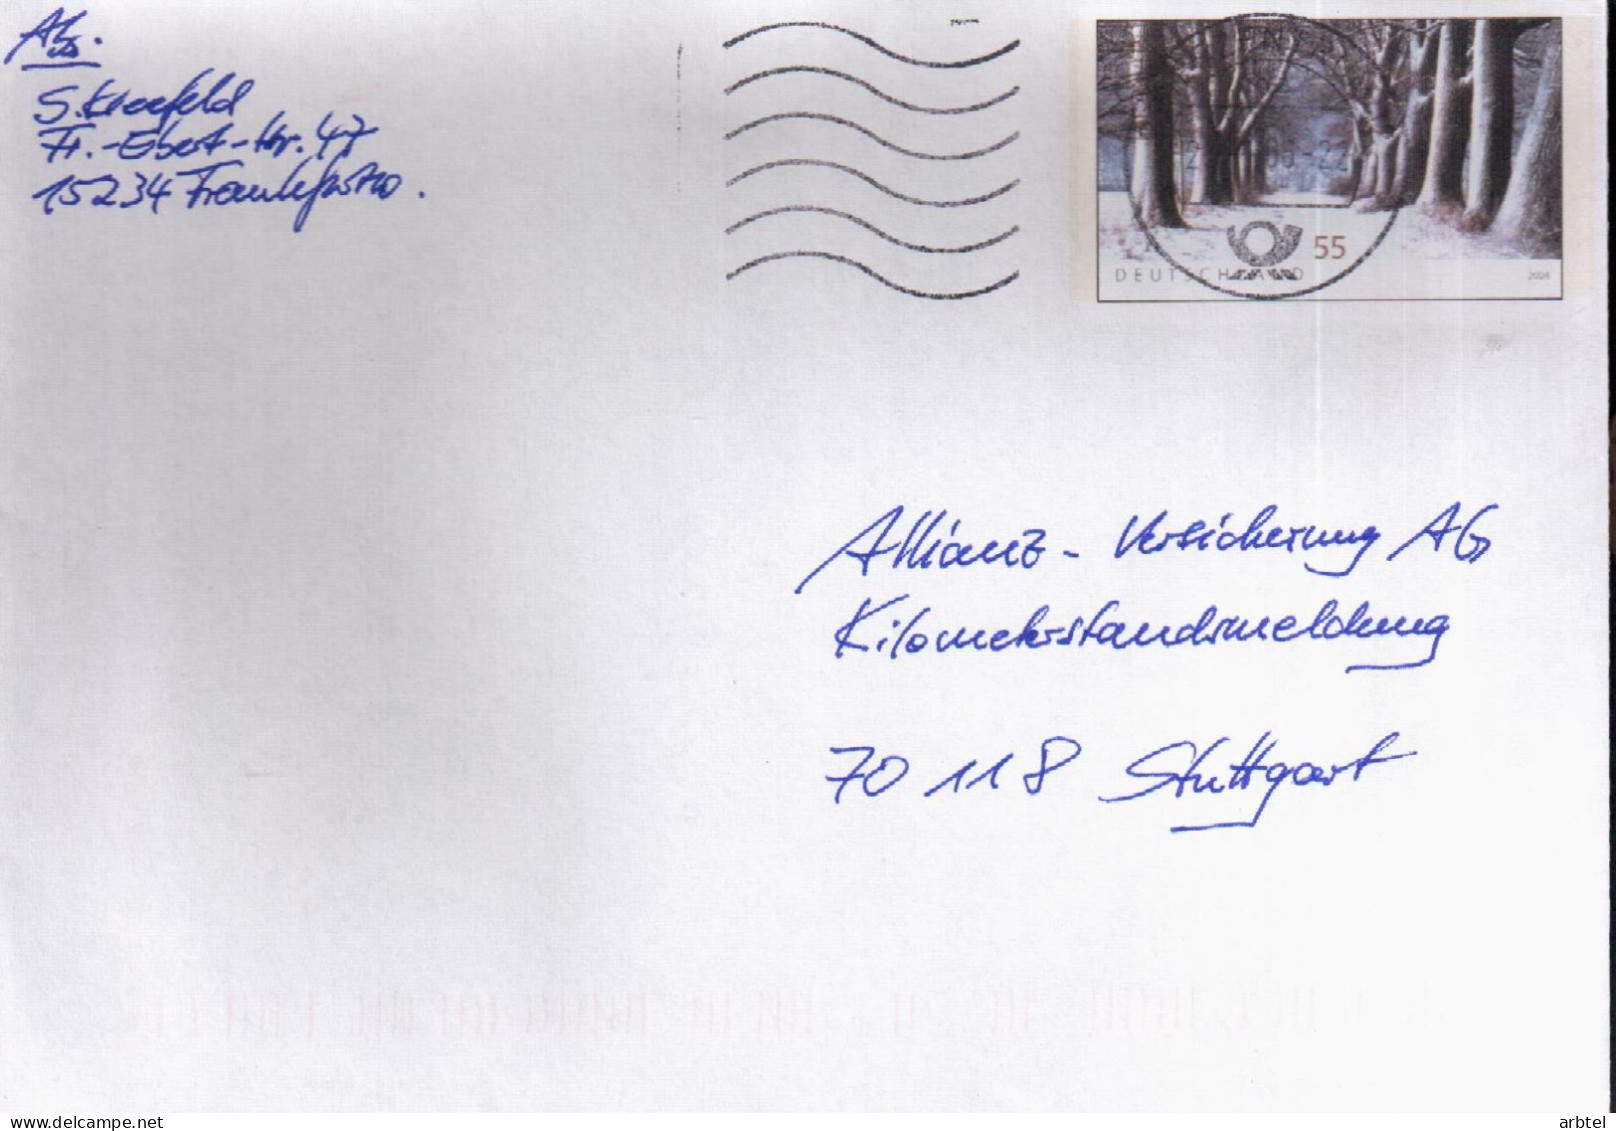 Abs.
S. Kleefeld
Fr.-Ebert-Str. 47
15234 Frankfurt/O.
55
DEUTSCHLAND
2004
Allianz - Versicherung AG
Kilometerstandsmeldung
70 118 Stuttgart
www.delcampe.net
arbtel